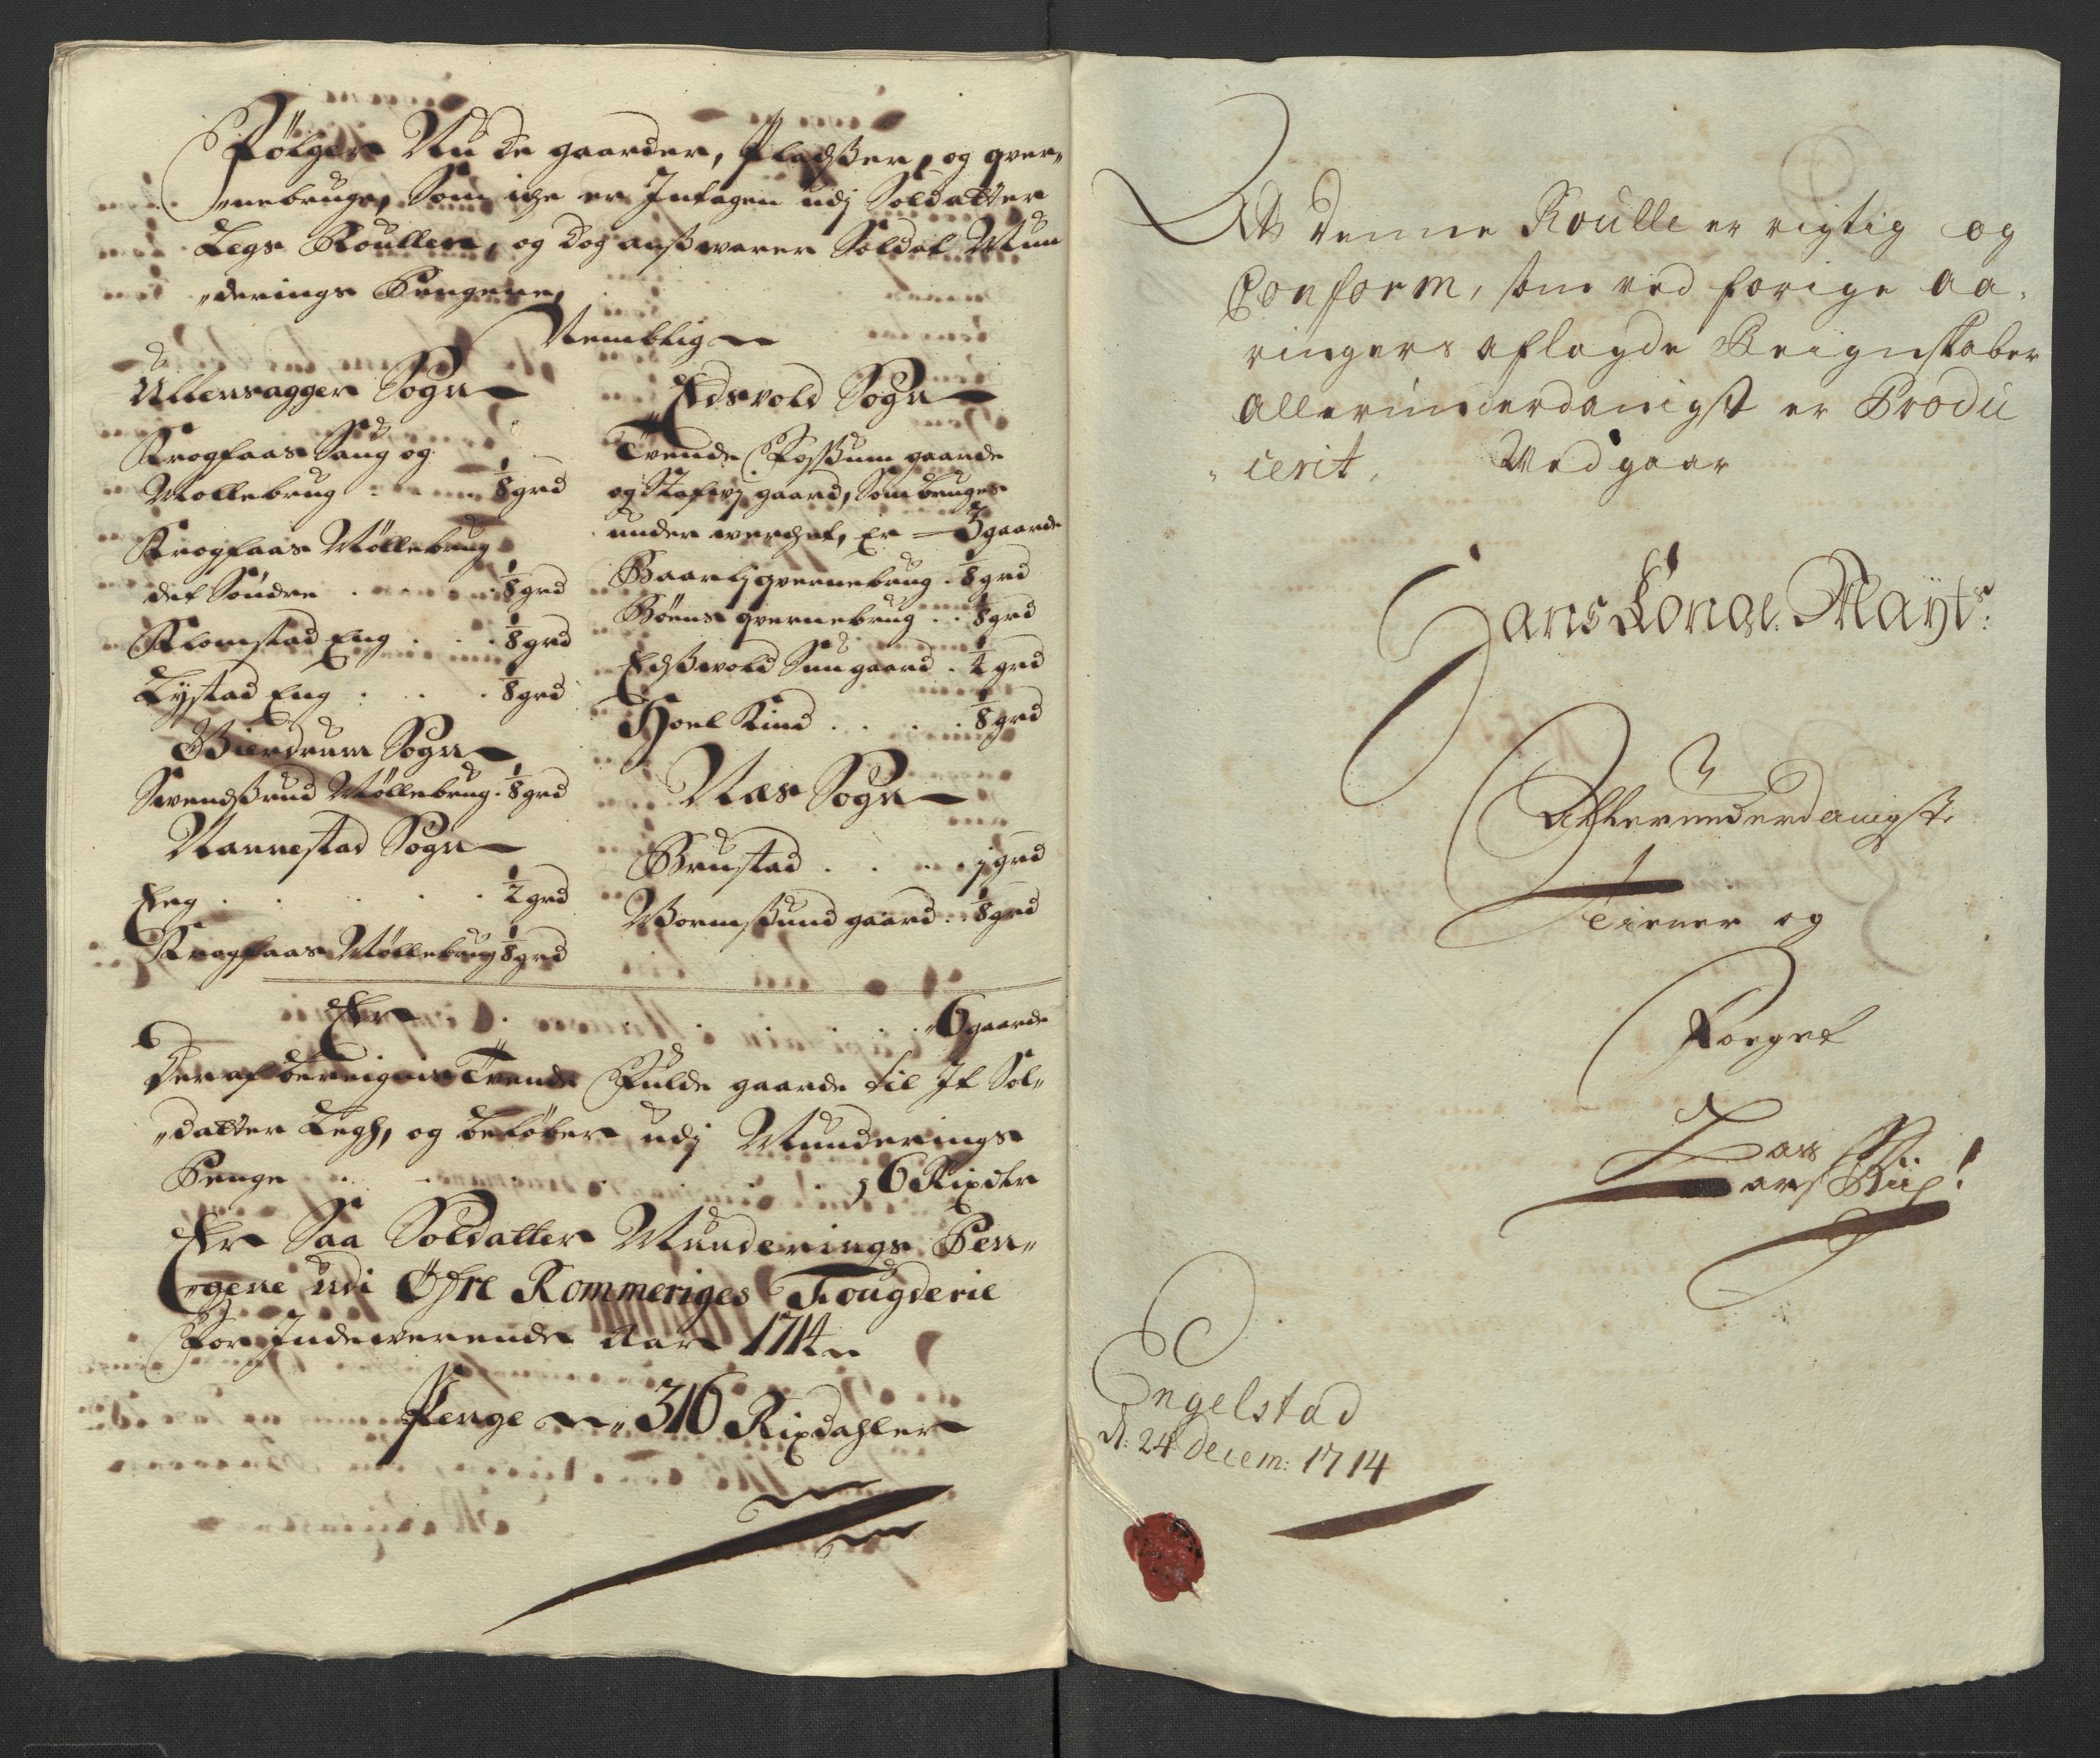 Fölger Nu de gaarder, Pladßer, og qver„
„nebruge, Som iche er Intagen udj Soldatter
Legs Roullen, og dog ansvarer Soldat Mun
„derings Pengene,
Nemblig
Ullensagger Sogn
Krogfaas Saug og
Mollebrug 1/8 grd
Krogfaas Möllebrug
det Söndre 1/8 grd
Klomstad Eng 1/8 grd
Lystad Eng 1/8 grd
Gierdrum Sogn
Svendßrud Möllebrug 1/8 grd
Nannestad Sogn
Eng 1/2 grd
Krogfaas Möllebrug 1/8 grd
Edsvold Sogn
Tvende Foßum gaarde
og gaard, Som bruges
under verchet, Er 3 gaarde
Baarlj qvernebrug 1/8 grd
Böens qvernebrug 1/8 grd
Edßvold Sungaard 1/4 grd
Hoel Kind 1/8 grd
Næs Sogn
Brustad 1 grd
Wormsßund gaard 1/8 grd
Er 6 gaarde
Deraf bereignis Tvende Fulde gaarde til It Sol„
„datter Legh, og beløber udj Munderings
Penge 6 Rixdlr
Er Saa Soldatter Munderings Pen„
„gene udi Öfre Rommeriges Fougderie
For Indeverende Aar 1714
Penge 316 Rixdahler
At denne Roulle er rigtig og
Conform, som ved forige aa„
ringers aflagde Reignskaber
allerunderdanigst er Produ
„cerit, Vedgaar
Hans Kongl. Mayts:
Allerunderdanigste
Tiener og
Foeget
Lars
Engelstad
d: 24 decem: 1714